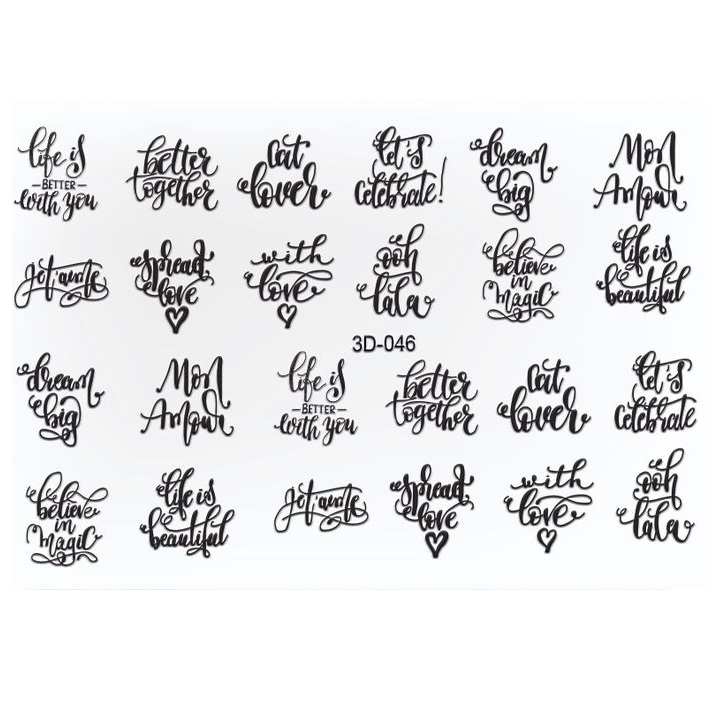 life is
BETTER
with you
better
together
cat
lover
let's
celebrate!
dream
big
Mon
Amour
Je t'aime
spread
love
with
love
ooh
lala
believe
in
Magic
life is
beautiful
3D-046
dream
big
Mon
Amour
life is
BETTER
with you
better
together
cat
lover
let's
celebrate
believe
in
Magic
life is
beautiful
Je t'aime
spread
love
with
love
ooh
lala